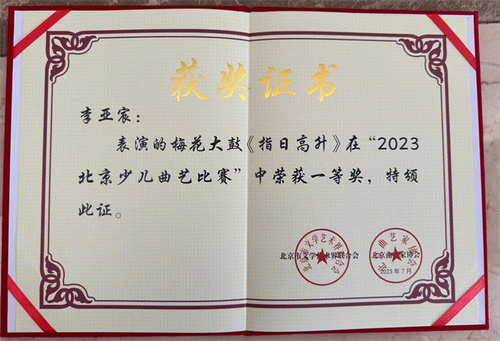 获奖证书
李亚宸：
表演的梅花大鼓《指日高升》在“2023
北京少儿曲艺比赛”中荣获一等奖，特颁
此证。
北京市文学艺术界联合会
北京曲艺家协会
2023年7月